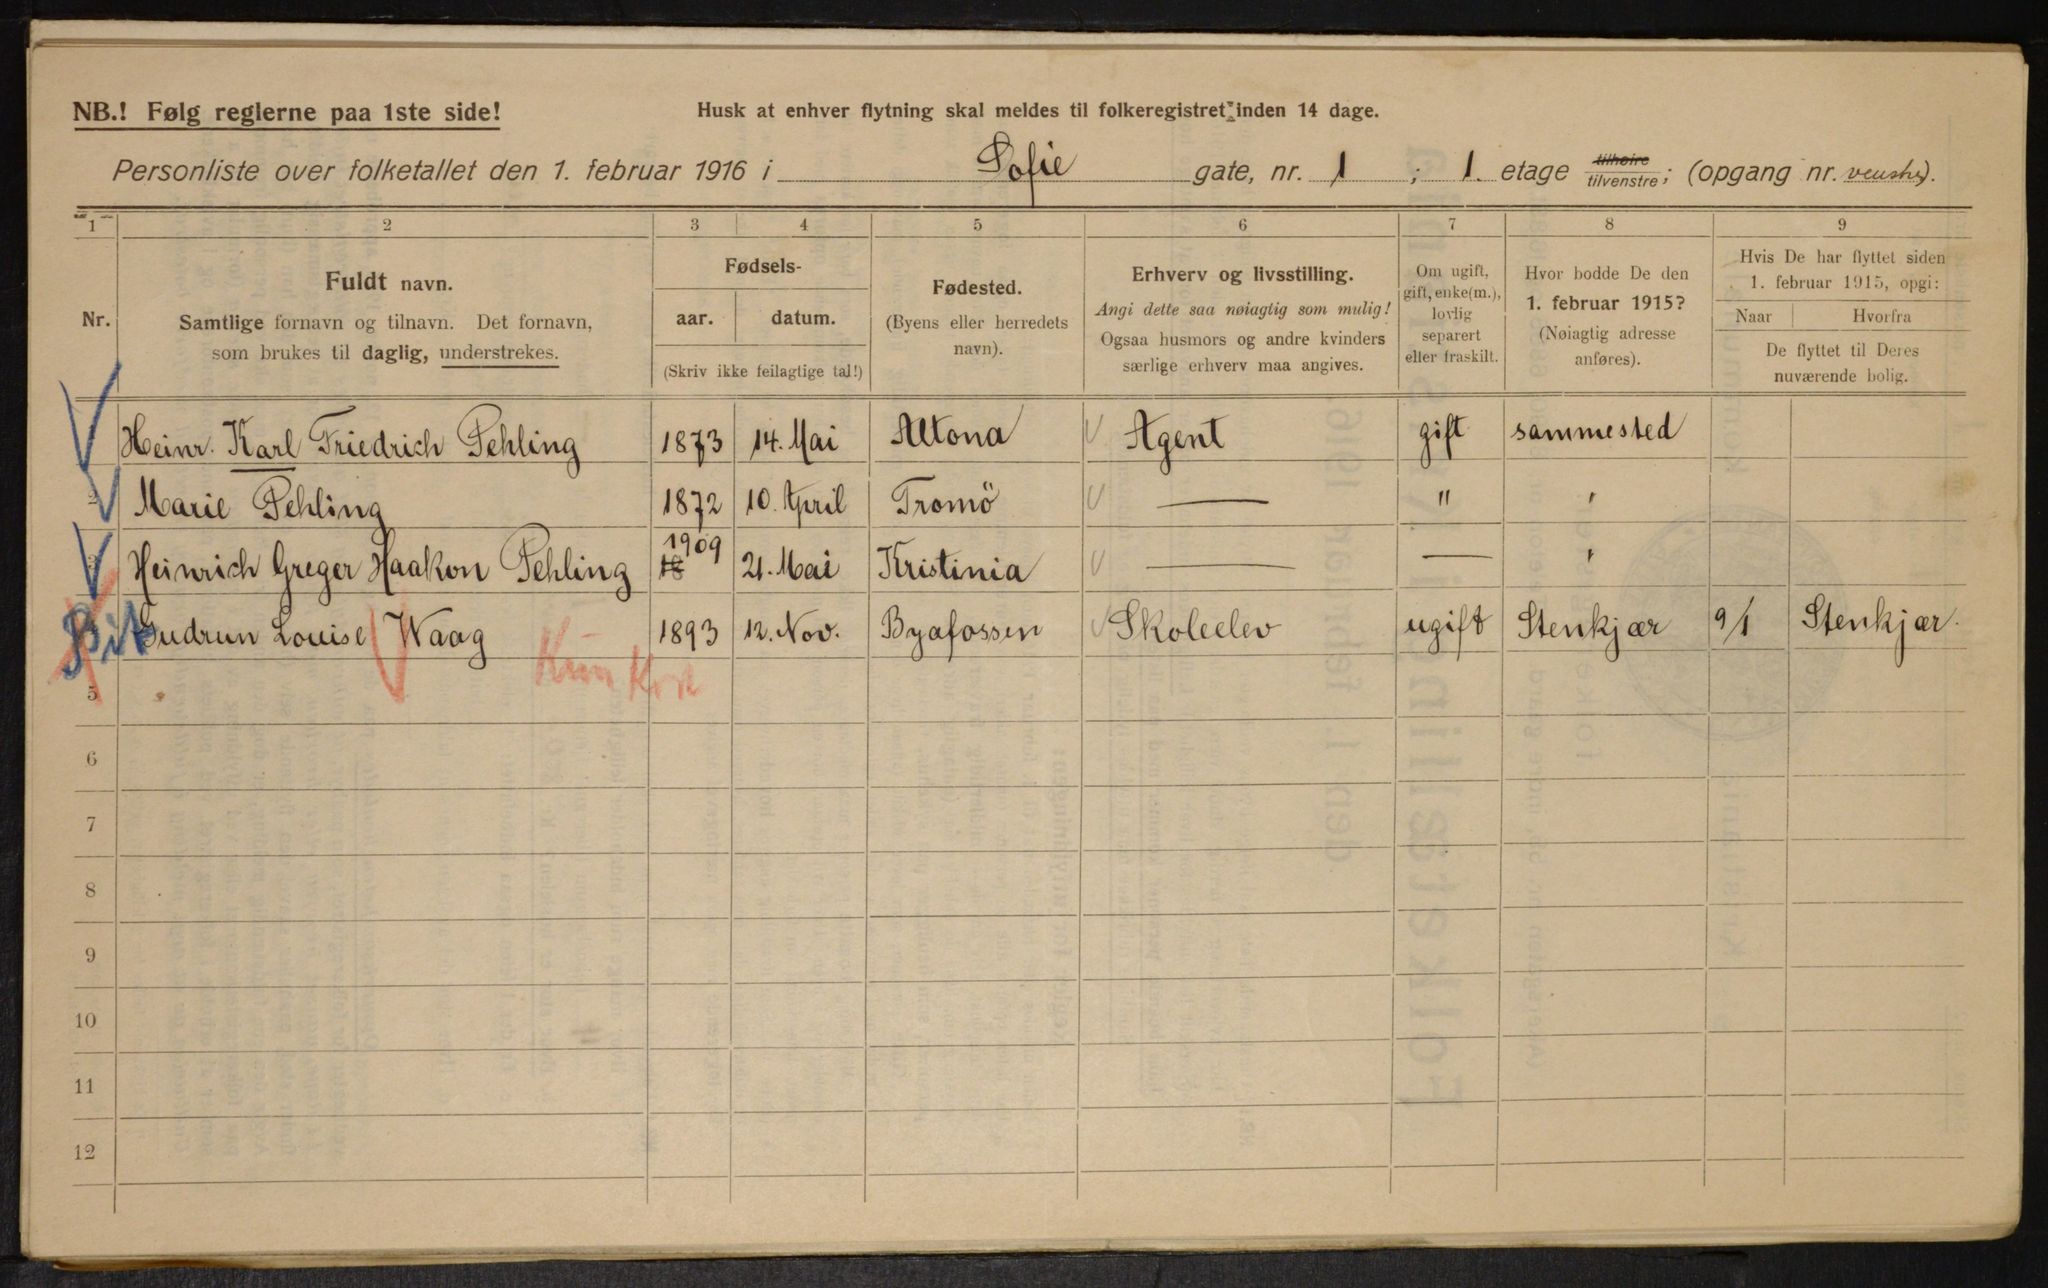 NB.! Følg reglerne paa 1ste side!
Husk at enhver flytning skal meldes til folkeregistret inden 14 dage.
Personliste over folketallet den 1. februar 1916 i Sofie gate, nr. 1 ; 1. etage tilhøire tilvenstre; (opgang nr. venstre).
1 2 3 4 5 6 7 8 9
Nr.
Fuldt navn.
Samtlige fornavn og tilnavn. Det fornavn,
som brukes til daglig, understrekes.
Fødsels-
aar. datum.
(Skriv ikke feilagtige tal!)
Fødested.
(Byens eller herredets
navn).
Erhverv og livsstilling.
Angi dette saa nøiagtig som mulig!
Ogsaa husmors og andre kvinders
særlige erhverv maa angives.
Om ugift,
gift, enke(m.),
lovlig
separert
eller fraskilt.
Hvor bodde De den
1. februar 1915?
(Nøiagtig adresse
anføres).
Hvis De har flyttet siden
1. februar 1915, opgi:
Naar Hvorfra
De flyttet til Deres
nuværende bolig.
Heinr. Karl Friedrich Pehling 1873 14. Mai Altona Agent gift sammested
2 Marie Pehling 1872 10. April Tromö — " "
Heinrich Greger Haakon Pehling 18 1909 21. Mai Kristinia — — "
Gudrun Louise Waag 1893 12. Nov. Byafossen Skoleelev ugift Stenkjær 9/1 Stenkjær.
5
6
7
8
9
10
11
12